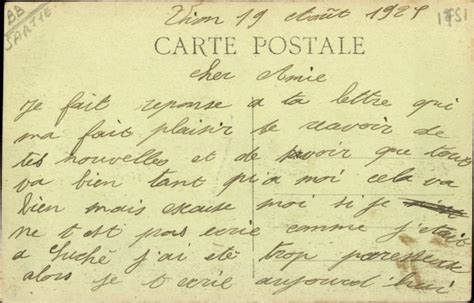 BB
SARTHE
19 Août 192
1751
CARTE POSTALE
cher Amie
Je fait reponse a ta lettre qui
ma fait plaisir de reavoir de
tes nouvelles et de savoir que tous
va bien tant qu'a moi cela va
bien mais excuse moi si je
ne t est pas ecrie comme j'etait
a Luché j'ai eté trop paresseux
alors je t ecrie aujourd'hui